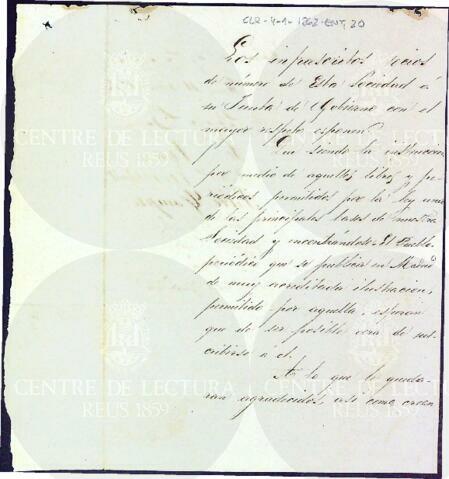 CLR-4-1-1862-ENT, 30
Los infrascritos socios
de número de Esta Sociedad á
su Junta de Gobierno con el
mayor respeto esponen
Que siendo la instruccion
por medio de aquellos libros y pe-
riódicos permitidos por la ley una
de las principales bases de nuestra
Sociedad y encontrándose El Pueblo
periódico que se publica en Madrid
de muy acreditada ilustracion,
permitido por aquella, esperan
que de ser posible será de sus-
cribirse á él.
A lo que le queda-
ran agradecidos, asi como creen
CENTRE DE LECTURA
REUS 1859
CENTRE DE LECTURA
REUS 1859